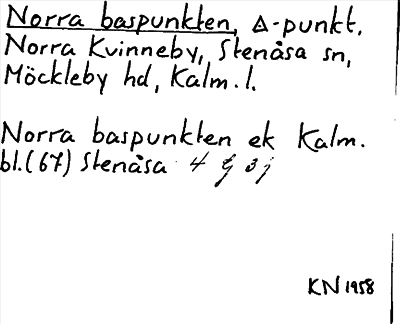 Norra baspunkten, Δ-punkt.
Norra Kvinneby, Stenåsa sn,
Möckleby hd, Kalm. l.
Norra baspunkten ek Kalm.
bl. (67) Stenåsa 4 g 3j
KN 1958